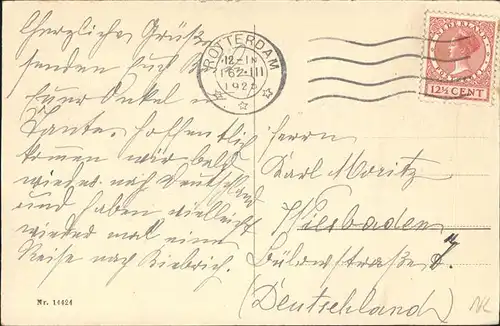 Herzliche Grüße
senden Euch
Euer Onkel u
Tante, hoffentlich
kommen wir bald
wieder nach Deutschland
und haben vielleicht
wieder mal eine
Reise nach Biebrich.
Nr. 14424
ROTTERDAM
12-1N
III
192
NEDERLAND
12½ CENT
Herrn
Karl Moritz
Wiesbaden
Bülowstraße
(Deutschland)